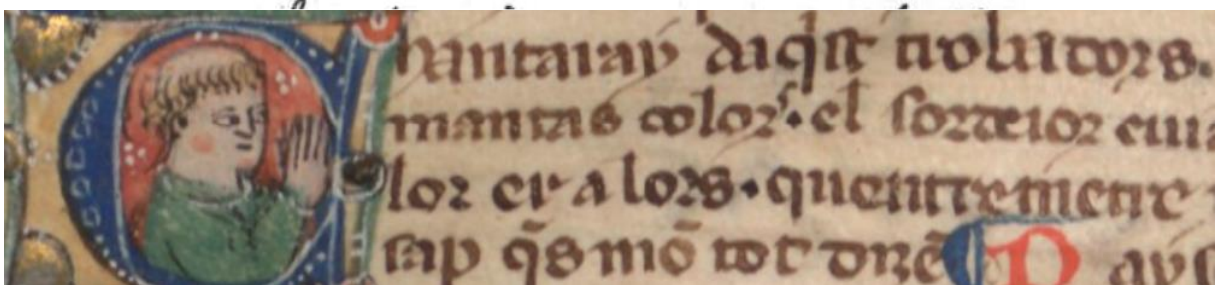 Chantaray daq̃st trobadors.
mantas colors. el sordeior cuia
lor er a lors. quentremetre
sap q̃s mõ tot drẽ P